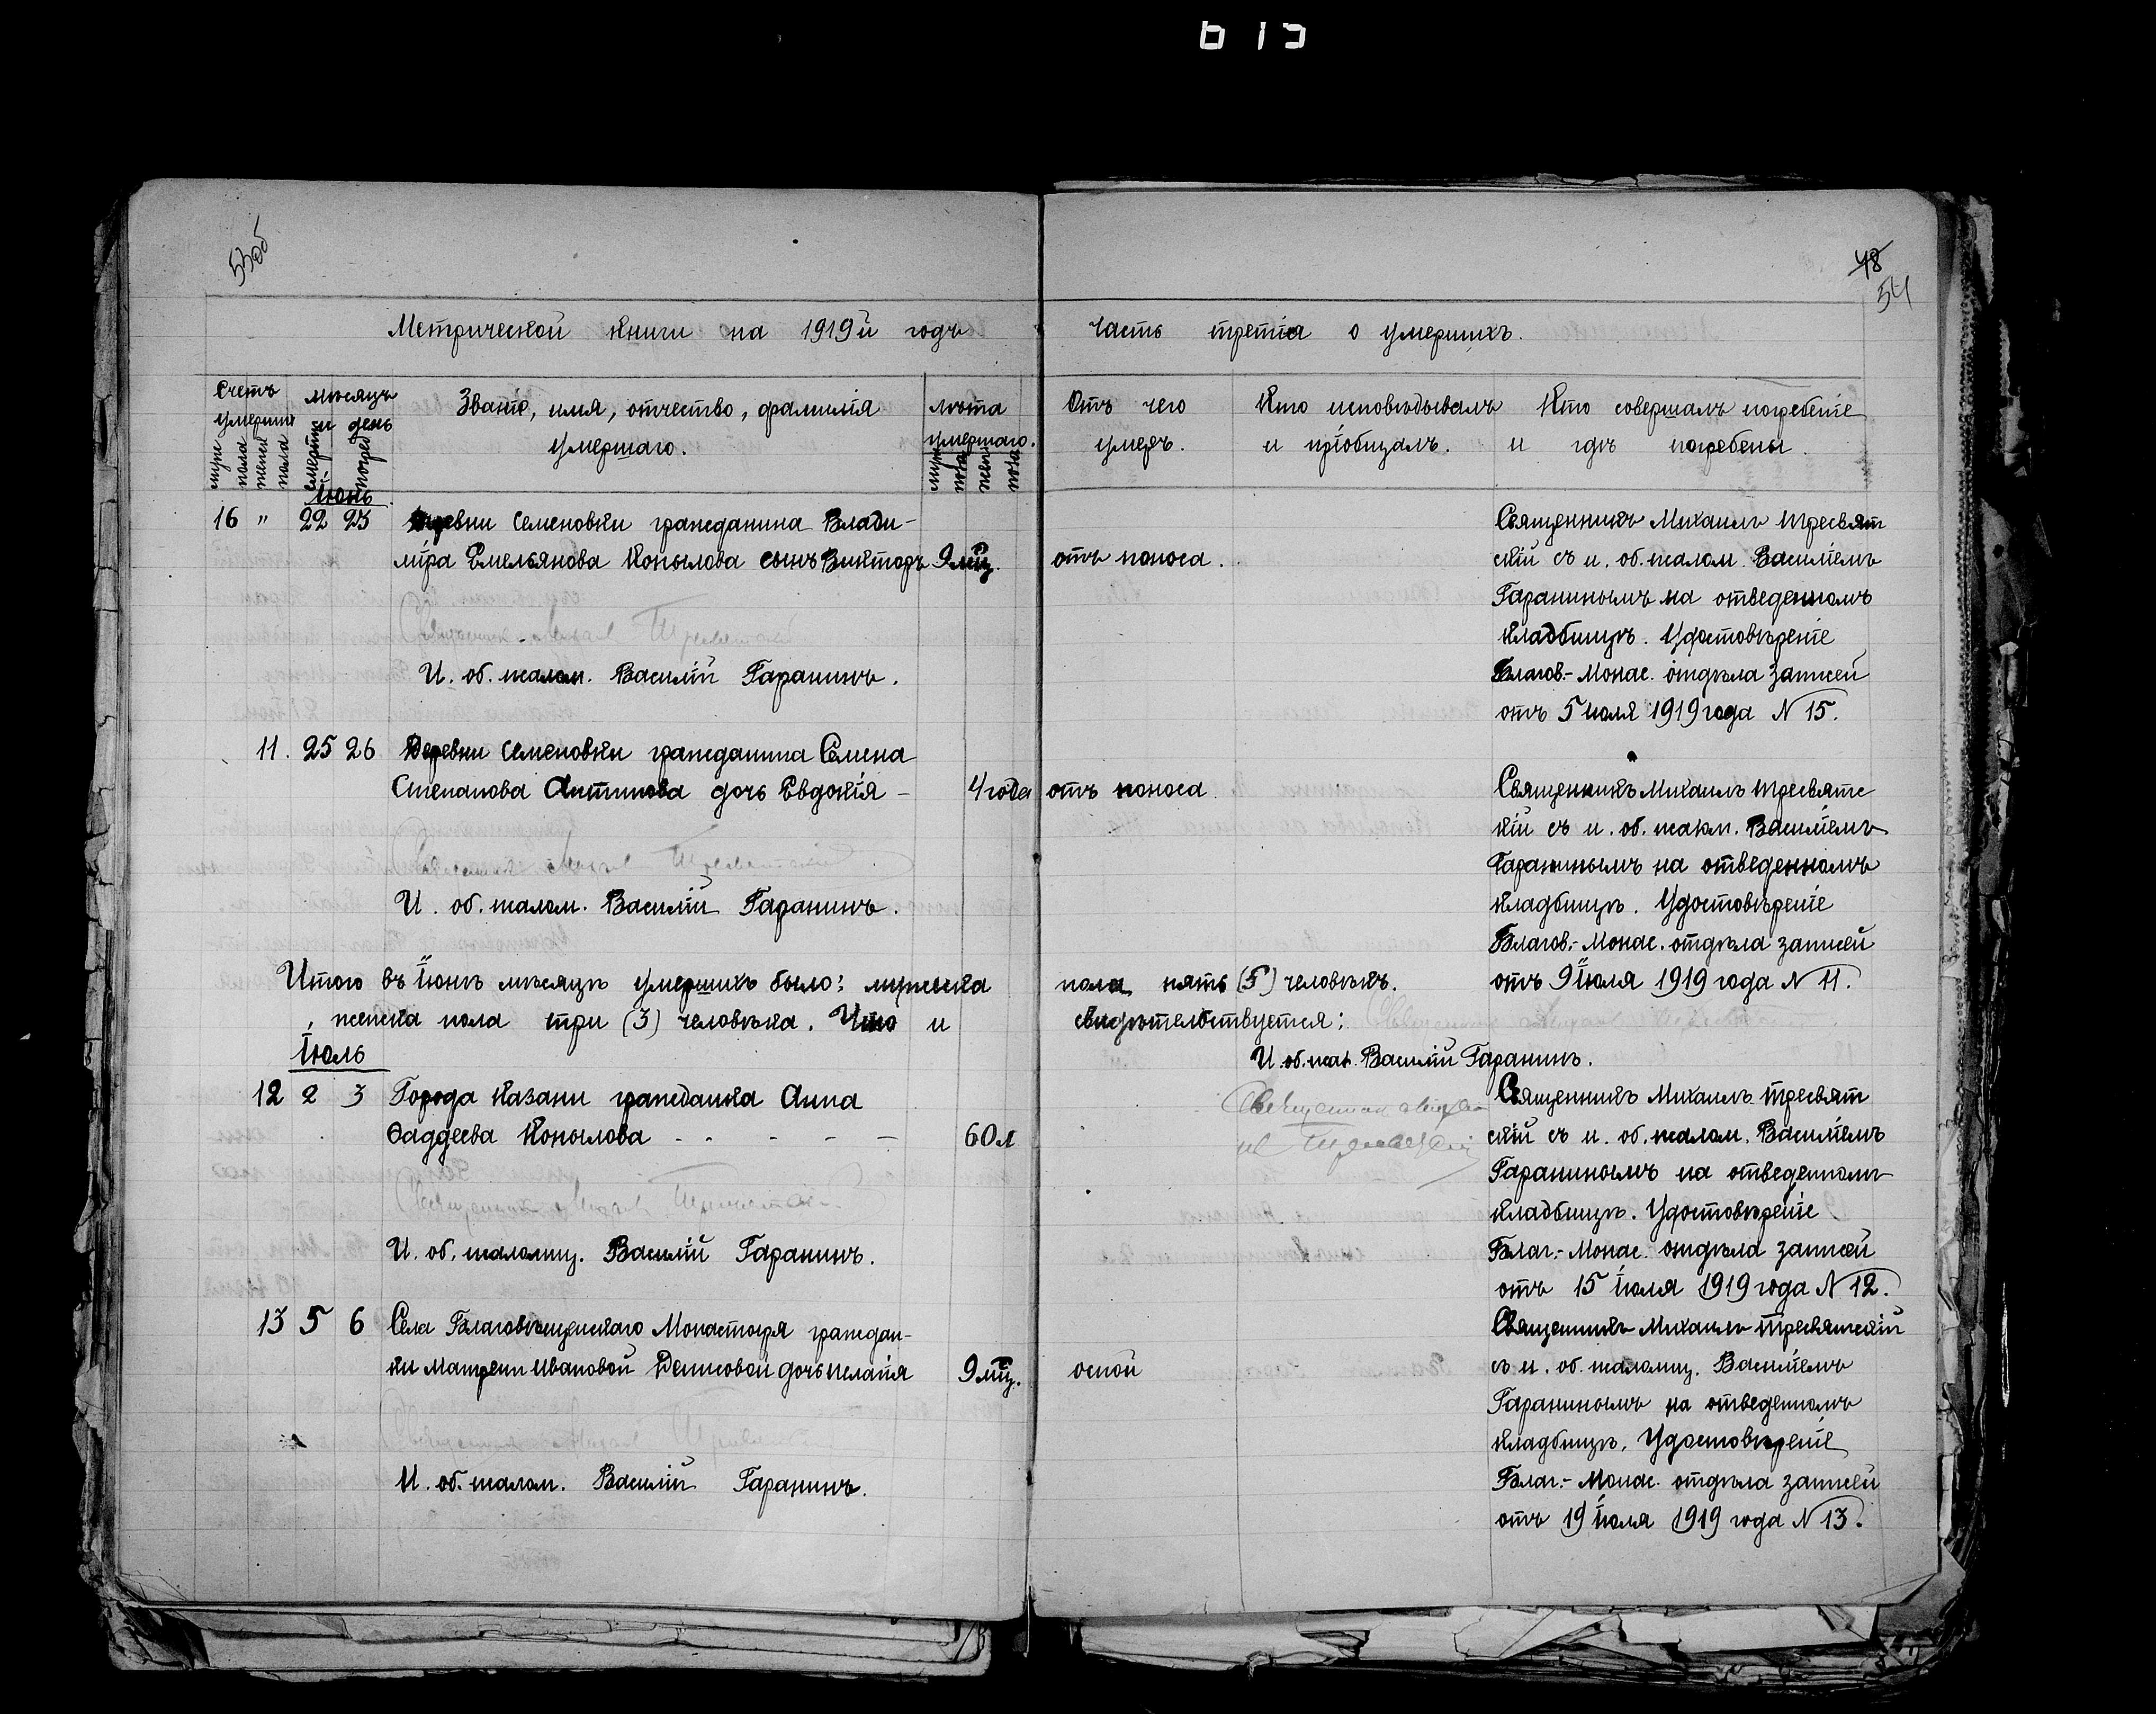 613
53об
48
54
Метрической книги на 1919й годъ
Часть третія о умершихъ.
Счетъ умершихъ
муж. пола
женск. пола
мѣсяцъ и день
смерти
погреб.
Званіе, имя, отчество, фамилія
умершаго.
лѣта
умершаго.
муж. пола
жен. пола
Отъ чего
умеръ.
Кто исповѣдывалъ
и пріобщалъ.
Кто совершалъ погребеніе
и гдѣ погребены.
Іюнь
16 " 22 23 Деревни Семеновки гражданина Влади-
міра Емельянова Копылова сынъ Викторъ 9 мѣц.
отъ поноса.
Священникъ Михаилъ Тресвят
скій съ и. об. псалом. Василіемъ
Гаранинымъ на отведенномъ
кладбищѣ. Удостовѣреніе
Благов.-Монас. отдѣла записей
отъ 5 июля 1919 года N 15.
Священник Михаил Тресвятский
И. об. псалом. Василій Гаранинъ.
11. 25 26 Деревни Семеновки гражданина Семена
Степанова Антипова дочь Евдокія – 4 года
отъ поноса
Священникъ Михаилъ Тресвятс
кій съ и. об. псалм. Василіемъ
Гаранинымъ на отведенномъ
кладбищѣ. Удостовѣреніе
Благов.-Монас. отдѣла записей
отъ 9 Іюля 1919 года N 11.
Священник Михаил Тресвятский
И. об. псалом. Василій Гаранинъ.
Итого въ Іюнѣ мѣсяцѣ умершихъ было: мужеска пола пять (5) человѣкъ.
женска пола три (3) человѣка. Что и свидѣтелбствуется:
И. об. псал. Василій Гаранинъ.
Священник Михаи
ил Тресвятский
Іюль
12 2 3 Города Казани гражданка Анна
Фаддеева Копылова - - - - 60 л
Священникъ Михаилъ Тресвят
скій съ и. об. псалом. Василіемъ
Гаранинымъ на отведенномъ
кладбищѣ. Удостовѣреніе
Благ.-Монас. отдѣла записей
отъ 15 Іюля 1919 года N 12.
Священник Михаил Тресвятский
И. об. псаломщ. Василій Гаранинъ.
13 5 6 Села Благовѣщенскаго Монастыря граждан-
ки Матрены Ивановой Денисовой дочь Пелагія 9 мѣц.
оспой
Священникъ Михаилъ Тресвятскій
съ и. об. псаломщ. Василіемъ
Гаранинымъ на отведенномъ
кладбищѣ. Удостовѣреніе
Благ.-Монас. отдѣла записей
отъ 19 Іюля 1919 года N 13.
Священник Михаил Тресвятский
И. об. псалом. Василій Гаранинъ.